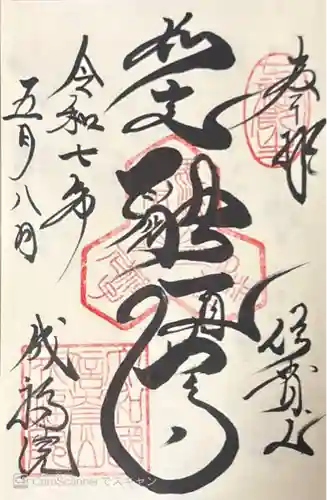 奉拝
信貴山
如意融通尊
令和七年
五月八日
成福院
CamScanner でスキャン